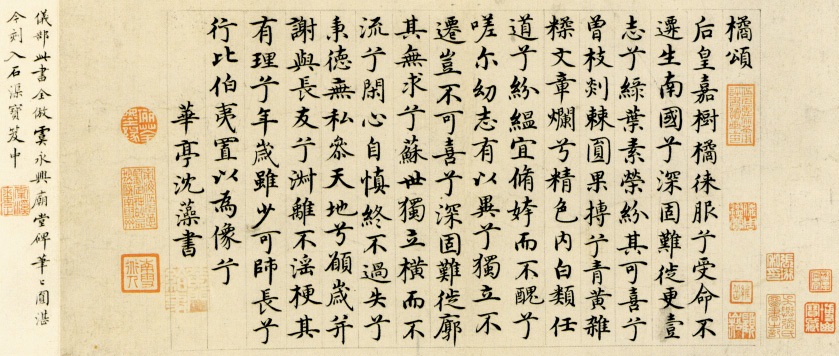 橘頌
后皇嘉樹橘徠服兮受命不
遷生南國兮深固難徙更壹
志兮綠葉素榮紛其可喜兮
曽枝剡棘圓果摶兮青黃雜
糅文章爛兮精色內白類任
道兮紛緼宜脩姱而不醜兮
嗟尔幼志有以異兮獨立不
遷豈不可喜兮深固難徙廓
其無求兮蘇世獨立橫而不
流兮閑心自慎終不過失兮
秉德無私叅天地兮願歲并
謝與長友兮淑離不淫梗其
有理兮年歲雖少可師長兮
行比伯夷置以為像兮
華亭沈藻書
儀部此書全倣虞永興廟堂碑筆〻圓湛
今刻入石渠寶笈中